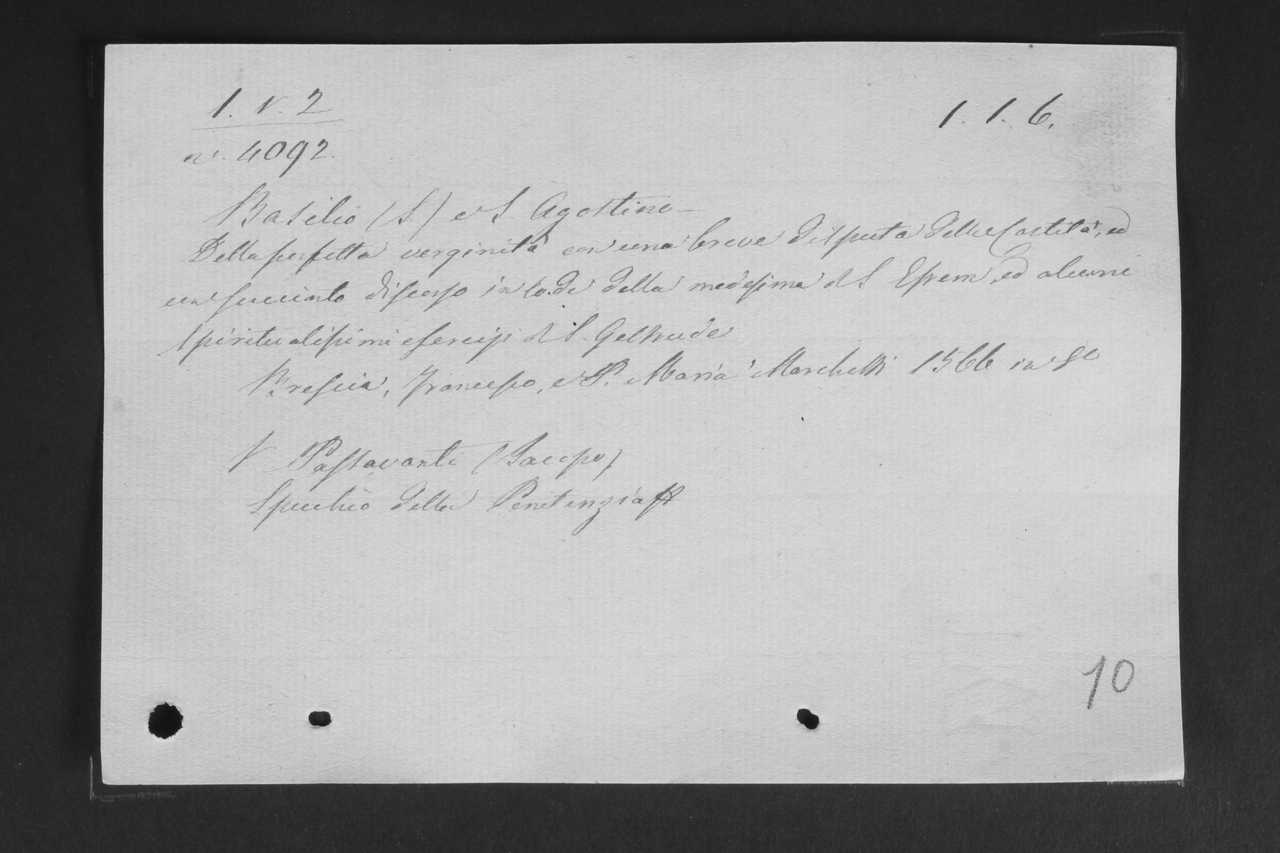 1. V. 2
1. 1. 6.
n. 4092.
Basilio (S.) e S. Agostino
Della perfetta verginità con una breve disputa della Castità, ed
un succinto discorso in lode della medesima di S. Efrem, ed alcuni
spiritualissimi esercizj di S. Geltrude
Brescia, Francesco, e P. Maria Marchetti 1566 in 8o
V Passavanti (Jacopo)
Specchio della Penitenzia
10